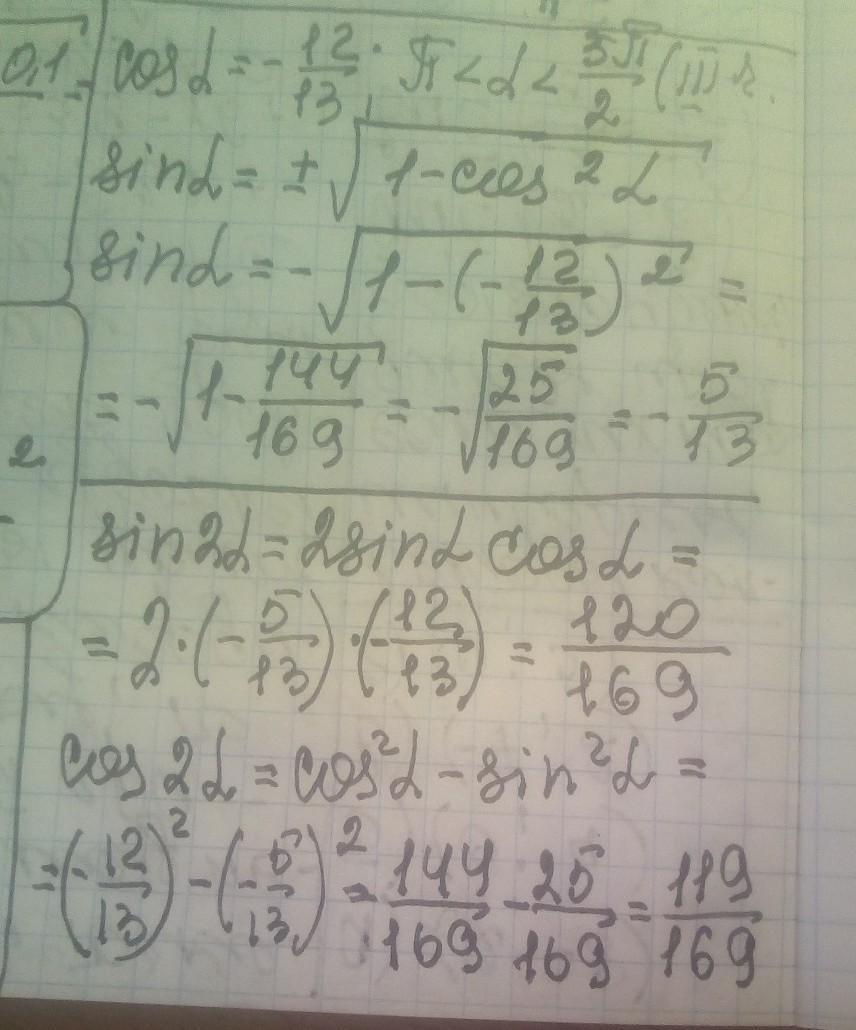 0,1 cos α = - 12/13; π < α < 3π/2 (III ч.
sin α = ± √(1 - cos² α)
sin α = - √(1 - (- 12/13)²) =
= - √(1 - 144/169) = - √(25/169) = - 5/13
2
sin 2α = 2 sin α cos α =
= 2 · (- 5/13) · (- 12/13) = 120/169
cos 2α = cos² α - sin² α =
= (- 12/13)² - (- 5/13)² = 144/169 - 25/169 = 119/169